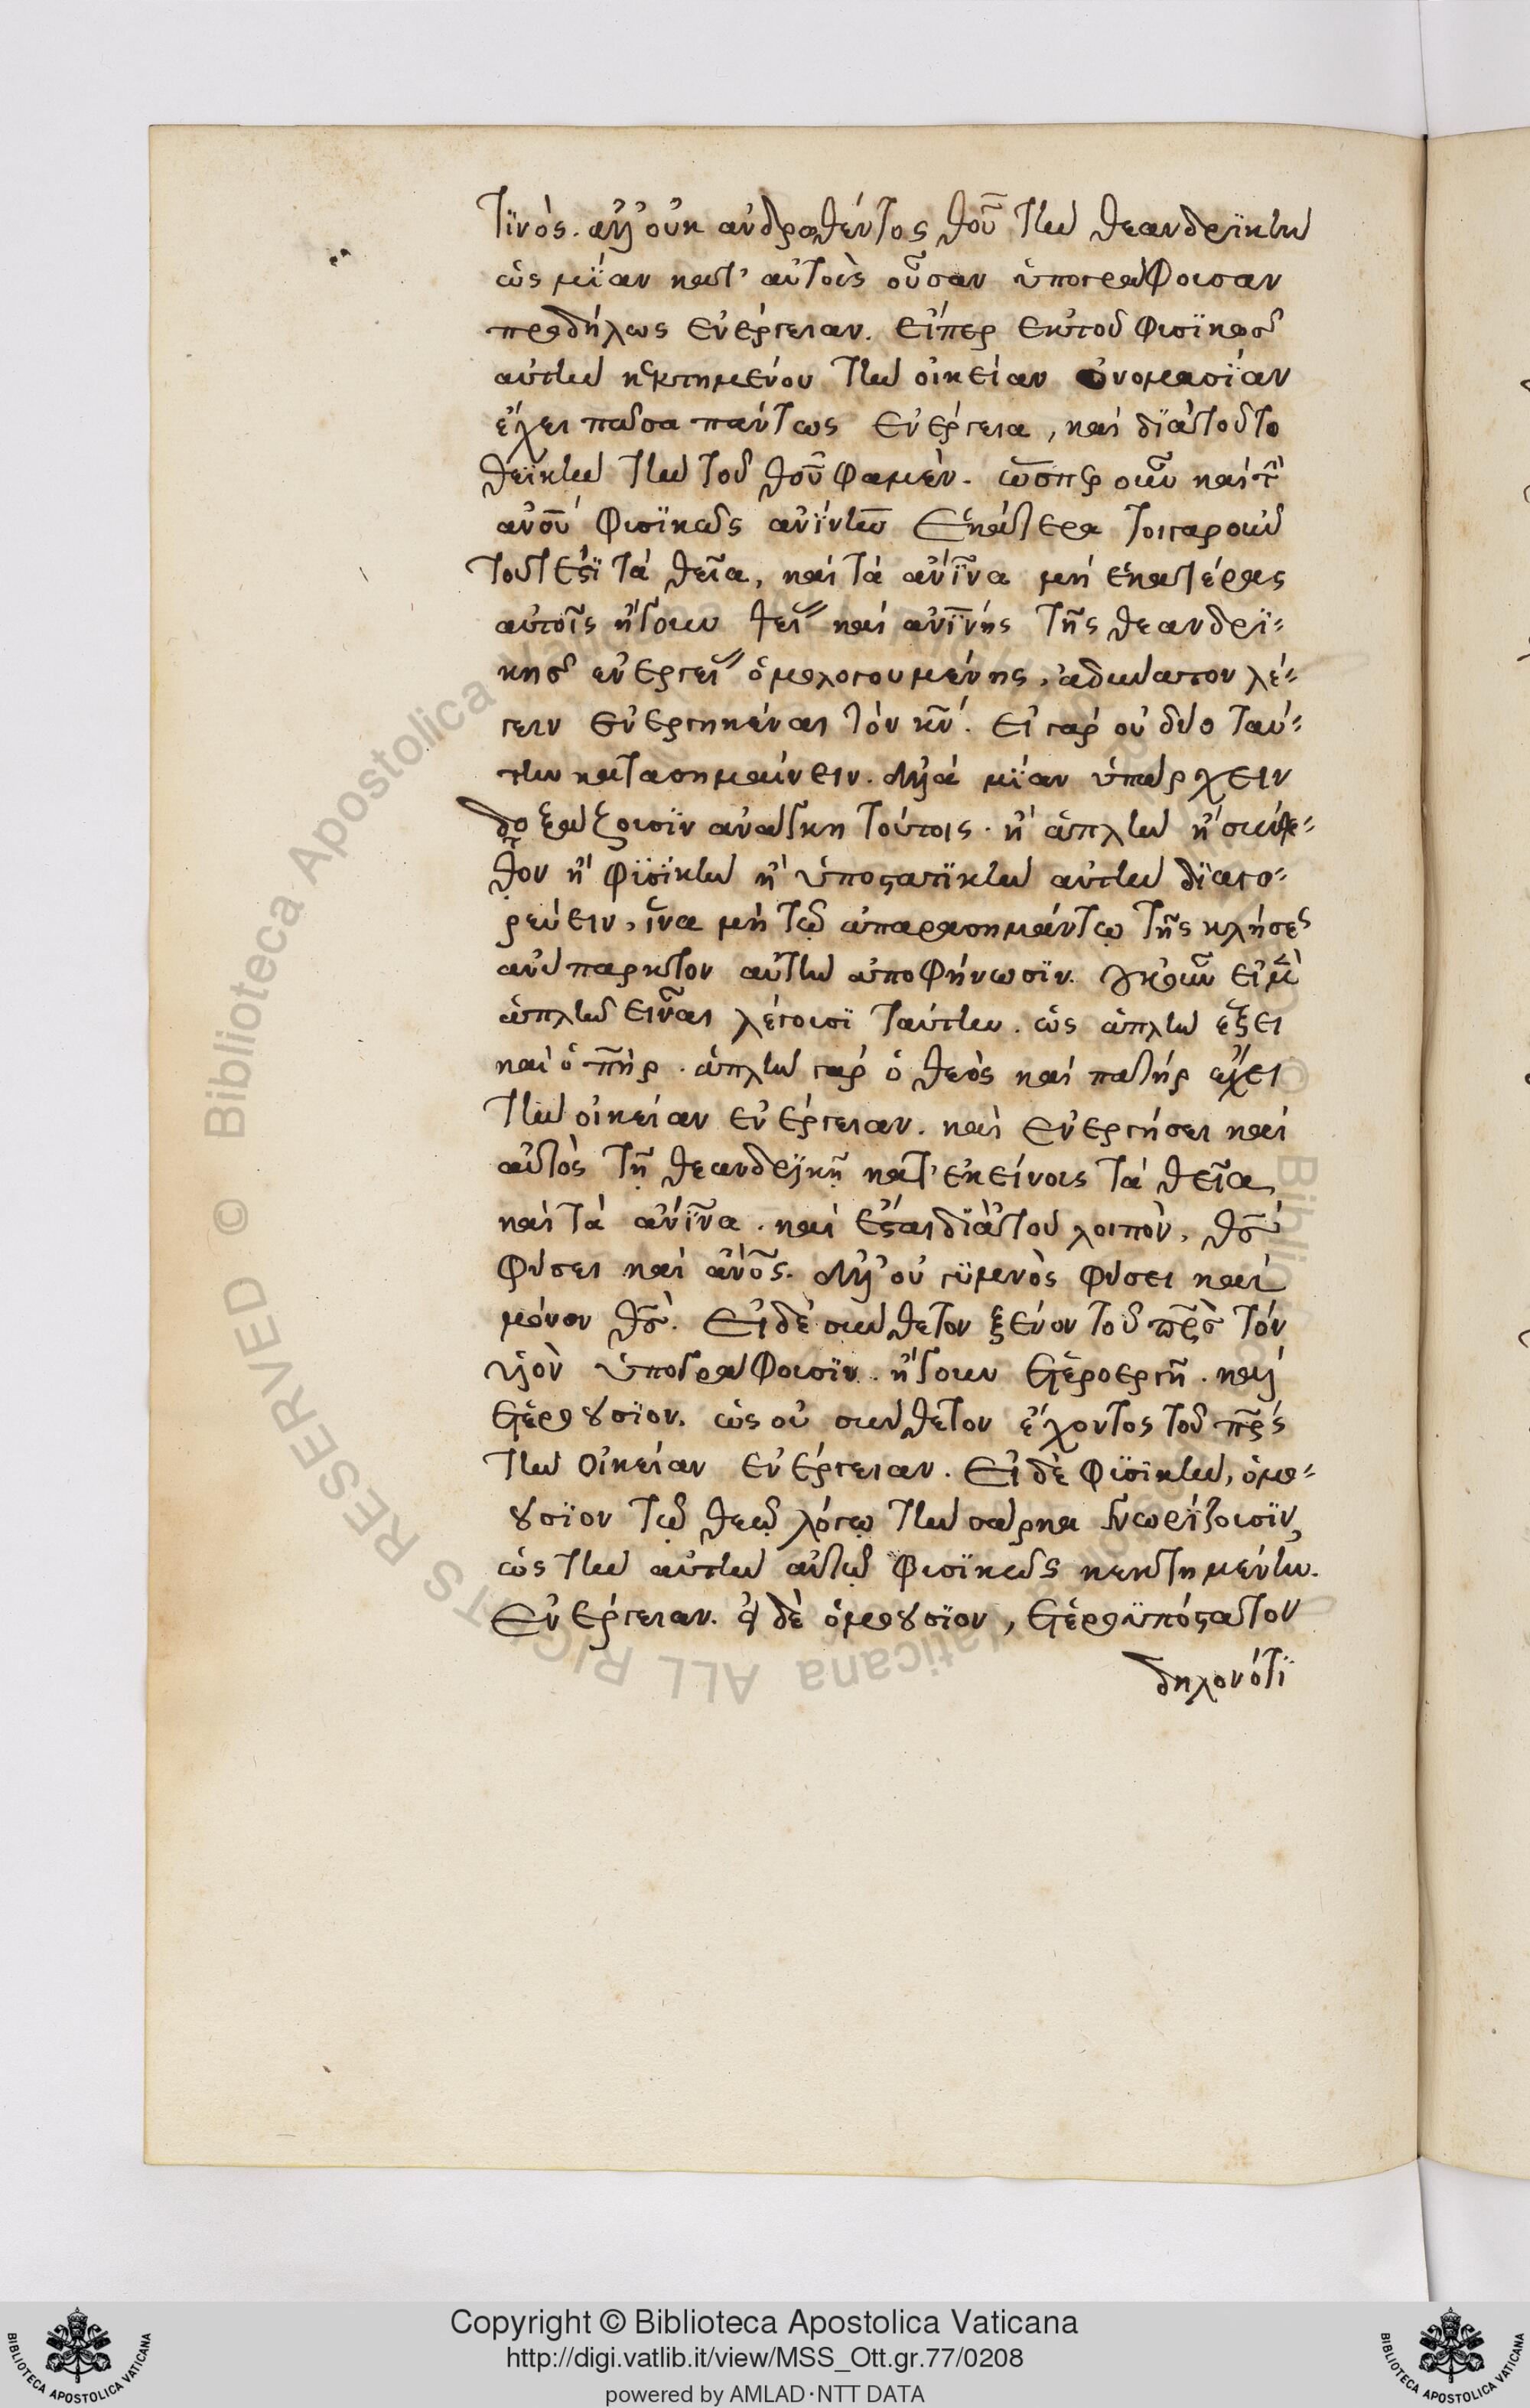 τϊνὸς. ἀλλ' οὐκ ἀνδρωθέντος θ̅υ̅ τὴν θεανδρϊκὴν
ὡς μΐαν κατ' αὐτοὺς οὖσαν ὑπογράφουσαν
προδήλως ἐνέργειαν. εἴπερ ἐκ τοῦ φυσϊκῶς
αὐτὴν κεκτημένου τὴν οἰκείαν ὀνομασΐαν
ἔχει πᾶσα πάντως ἐνέργεια, καὶ δϊὰ τοῦτο
θεϊκὴν τὴν τοῦ θ̅υ̅ φαμὲν. ὥσπερ οὖν καὶ τ̀
ἀν̅ο̅υ̅ φυσϊκῶς ἀν̅ϊ̅ν̅ην ἑκάτερα τοιγαροῦν
τουτέστϊ τὰ θεῖα, καὶ τὰ ἀν̅ϊ̅ν̅α μὴ ἑκατέρας
αὐτοῖς ἤγουν θεϊ̈̃ καὶ ἀν̅ϊ̅ν̅ης τῆς θεανδρϊ-
κῆς ἐνεργεί ὁμολογουμένης, ἀδύνατον λέ-
γειν ἐνεργηκέναι τὸν κ̅ν̅. εἰ γὰρ οὐ δύο ταύ-
την κατασημαίνειν. ἀλλὰ μΐαν ὑπάρχειν
δοξάζουσϊν ἀνάγκη τούτοις. ἢ ἁπλὴν ἢ σύνθε-
τον ἢ φϋσϊκὴν ἢ ὑποστατϊκὴν αὐτὴν δϊαγο-
ρεύειν, ἵνα μὴ τῷ ἀπαρασημάντῳ τῆς κλήσες
ἀνύπαρκτον αὐτὴν ἀποφήνωσϊν. οὐκοῦν εἰ μ̀
ἁπλὴν εἶναι λέγουσϊ ταύτην. ὡς ἁπλὴν ἕξει
καὶ ὁ π̅ή̅ρ. ἁπλὴν γὰρ ὁ θεὸς καὶ πατὴρ ἔχει
τὴν οἰκείαν ἐνέργειαν. καὶ ἐνεργήσει καὶ
αὐτὸς τῇ θεανδρϊκῇ κατ' ἐκείνους τὰ θεῖα,
καὶ τὰ ἀν̅ϊ̅ν̅α. καὶ ἔσται δϊὰ τοῦ λοιπὸν, θ̅ς̅
φύσει καὶ ἄν̅ο̅ς̅. ἀλλ' οὐ γϋμνὸς φύσει καὶ
μόνον θ̅ς̅. εἰ δὲ σύνθετον ξένον τοῦ π̅ρ̅ς̅ τὸν
υἱὸν ὑπογράφουσϊν. ἤγουν ἑτεροεργῆ. καὶ
ἑτεροούσϊον. ὡς οὐ σύνθετον ἔχοντος τοῦ π̅ρ̅ς̅
τὴν οἰκείαν ἐνέργειαν. εἰ δὲ φϋσϊκὴν, ὁμο-
ούσϊον τῷ θεῷ λόγῳ τὴν σάρκα γνωρΐζουσϊν,
ὡς τὴν αὐτὴν αὐτῷ φυσϊκῶς κεκτημένην.
ἐνέργειαν. εἰ δὲ ὁμοούσϊον, ἑτεροϋπόστατον
δηλονότϊ